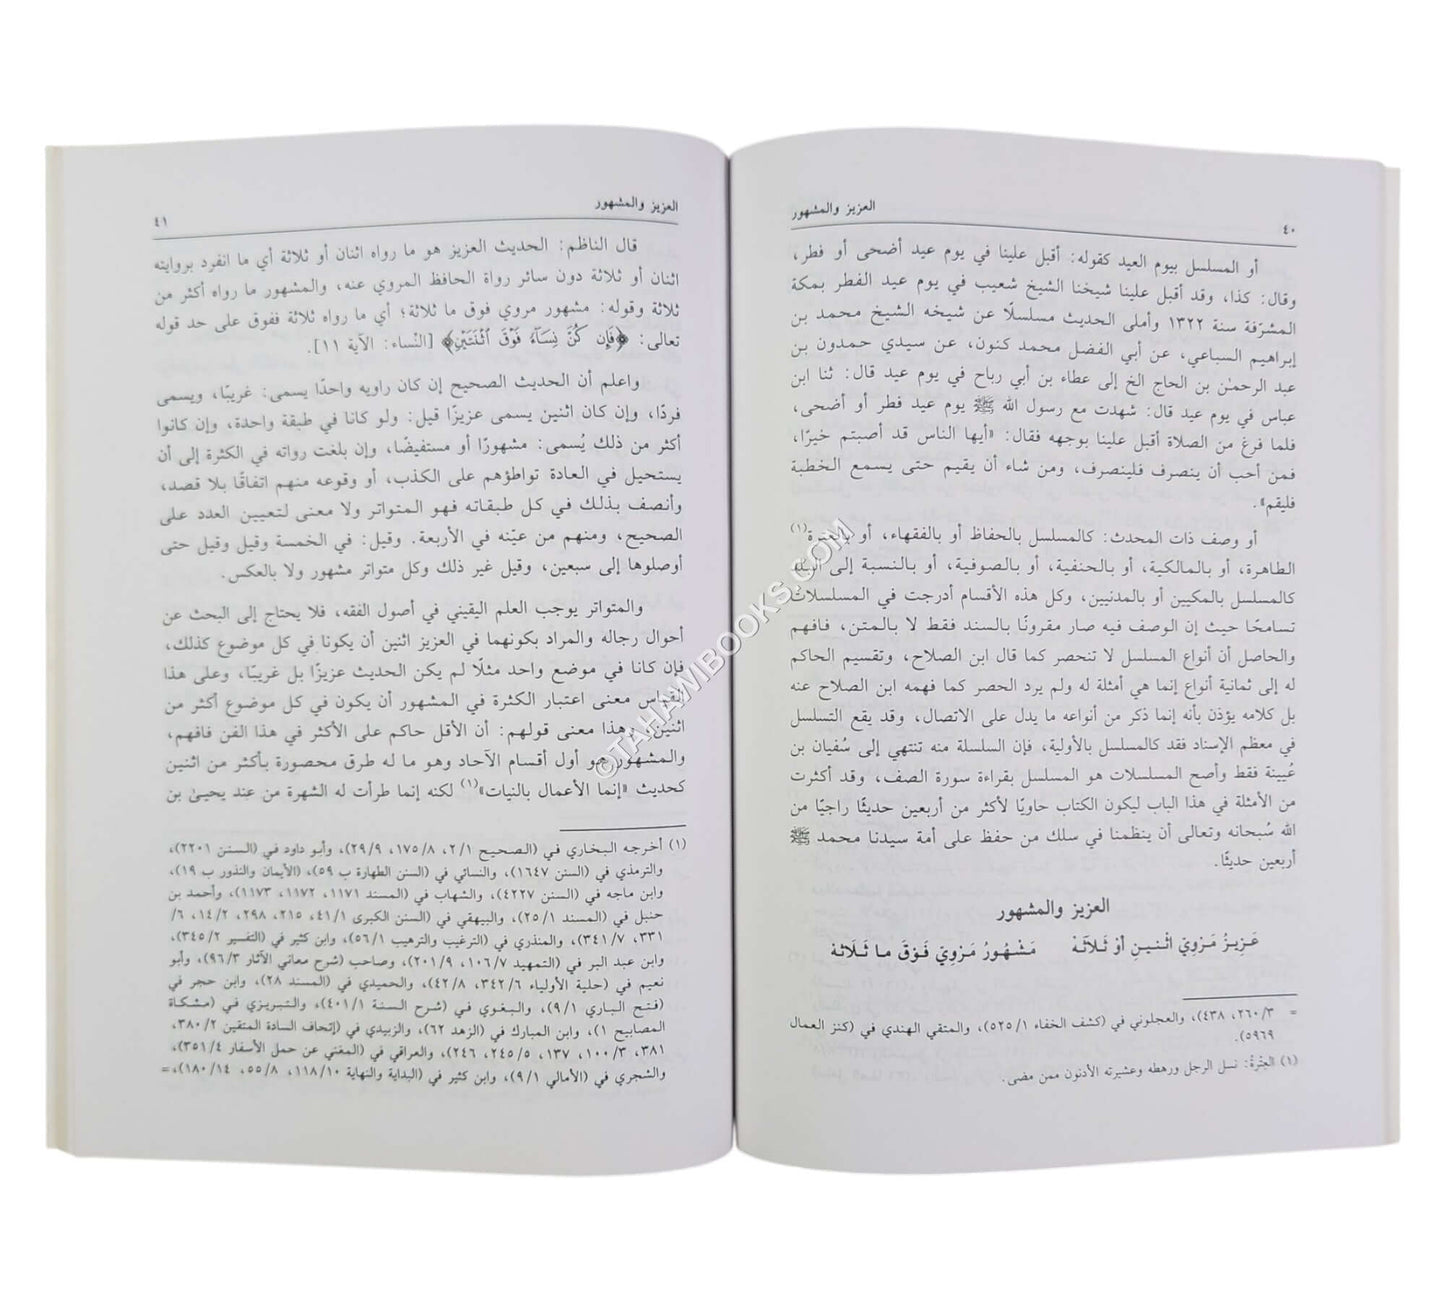 ٤٠
العزيز والمشهور
أو المسلسل بيوم العيد كقوله: أقبل علينا في يوم عيد أضحى أو فطر،
وقال: كذا، وقد أقبل علينا شيخنا الشيخ شعيب في يوم عيد الفطر بمكة
المشرّفة سنة ١٣٢٢ وأملى الحديث مسلسلًا عن شيخه الشيخ محمد بن
إبراهيم السباعي، عن أبي الفضل محمد كنون، عن سيدي حمدون بن
عبد الرحمٰن بن الحاج الخ إلى عطاء بن أبي رباح في يوم عيد قال: ثنا ابن
عباس في يوم عيد قال: شهدت مع رسول الله ﷺ يوم عيد فطر أو أضحى،
فلما فرغ من الصلاة أقبل علينا بوجهه فقال: «أيها الناس قد أصبتم خيرًا،
فمن أحب أن ينصرف فلينصرف، ومن شاء أن يقيم حتى يسمع الخطبة
فليقم».
أو وصف ذات المحدث: كالمسلسل بالحفاظ أو بالفقهاء، أو بالعترة(١)
الطاهرة، أو بالمالكية، أو بالحنفية، أو بالصوفية، أو بالنسبة إلى البلد
كالمسلسل بالمكيين أو بالمدنيين، وكل هذه الأقسام أدرجت في المسلسلات
تسامحًا حيث إن الوصف فيه صار مقرونًا بالسند فقط لا بالمتن، فافهم
والحاصل أن أنواع المسلسل لا تنحصر كما قال ابن الصلاح، وتقسيم الحاكم
له إلى ثمانية أنواع إنما هي أمثلة له ولم يرد الحصر كما فهمه ابن الصلاح عنه
بل كلامه يؤذن بأنه إنما ذكر من أنواعه ما يدل على الاتصال، وقد يقع التسلسل
في معظم الإسناد فقد كالمسلسل بالأولية، فإن السلسلة منه تنتهي إلى سُفيان بن
عُيينة فقط وأصح المسلسلات هو المسلسل بقراءة سورة الصف، وقد أكثرت
من الأمثلة في هذا الباب ليكون الكتاب حاويًا لأكثر من أربعين حديثًا راجيًا من
الله سُبحانه وتعالى أن ينظمنا في سلك من حفظ على أمة سيدنا محمد ﷺ
أربعين حديثًا.
العزيز والمشهور
عَزِيزُ مَرْوِيّ اثْنَيـنِ أوْ ثَـلاثَـهْ مَشْهُورُ مَرْوِيّ فَوْقَ ما ثَلَاثه
= ٢٦٠/٣، ٤٣٨)، والعجلوني في (كشف الخفاء ٥٢٥/١)، والمتقي الهندي في (كنز العمال
٥٩٦٩).
(١) العِتْرةُ: نسل الرجل ورهطه وعشيرته الأدنون ممن مضى.
العزيز والمشهور
٤١
قال الناظم: الحديث العزيز هو ما رواه اثنان أو ثلاثة أي ما انفرد بروايته
اثنان أو ثلاثة دون سائر رواة الحافظ المروي عنه، والمشهور ما رواه أكثر من
ثلاثة وقوله: مشهور مروي فوق ما ثلاثة؛ أي ما رواه ثلاثة ففوق على حد قوله
تعالى: ﴿فَإِن كُنَّ نِسَآءً فَوْقَ ٱثْنَتَيْنِ﴾ [النّساء: الآية ١١].
واعلم أن الحديث الصحيح إن كان راويه واحدًا يسمى: غريبًا، ويسمى
فردًا، وإن كان اثنين يسمى عزيزًا قيل: ولو كانا في طبقة واحدة، وإن كانوا
أكثر من ذلك يُسمى: مشهورًا أو مستفيضًا، وإن بلغت رواته في الكثرة إلى أن
يستحيل في العادة تواطؤهم على الكذب، أو وقوعه منهم اتفاقًا بلا قصد،
وأنصف بذلك في كل طبقاته فهو المتواتر ولا معنى لتعيين العدد على
الصحيح، ومنهم من عيّنه في الأربعة. وقيل: في الخمسة وقيل وقيل حتى
أوصلوها إلى سبعين، وقيل غير ذلك وكل متواتر مشهور ولا بالعكس.
والمتواتر يوجب العلم اليقيني في أصول الفقه، فلا يحتاج إلى البحث عن
أحوال رجاله والمراد بكونهما في العزيز اثنين أن يكونا في كل موضوع كذلك،
فإن كانا في موضع واحد مثلًا لم يكن الحديث عزيزًا بل غريبًا، وعلى هذا
القياس معنى اعتبار الكثرة في المشهور أن يكون في كل موضوع أكثر من
اثنين، وهذا معنى قولهم: أن الأقل حاكم على الأكثر في هذا الفن فافهم،
والمشهور هو أول أقسام الآحاد وهو ما له طرق محصورة بأكثر من اثنين
كحديث «إنما الأعمال بالنيات»(١) لكنه إنما طرأت له الشهرة من عند يحيىٰ بن
(١) أخرجه البخاري في (الصحيح ٢/١، ١٧٥/٨، ٢٩/٩)، وأبو داود في (السنن ٢٢٠١)،
والترمذي في (السنن ١٦٤٧)، والنسائي في (السنن الطهارة ب ٥٩)، (الأيمان والنذور ب ١٩)،
وابن ماجه في (السنن ٤٢٢٧)، والشهاب في (المسند ١١٧١، ١١٧٢، ١١٧٣)، وأحمد بن
حنبل في (المسند ٢٥/١)، والبيهقي في (السنن الكبرى ٤١/١، ٢١٥، ٢٩٨، ١٤/٢، ٦/
٣٣١، ٣٤١/٧)، والمنذري في (الترغيب والترهيب ٥٦/١)، وابن كثير في (التفسير ٣٤٥/٢)،
وابن عبد البر في (التمهيد ١٠٦/٧، ٢٠١/٩)، وصاحب (شرح معاني الآثار ٩٦/٣)، وأبو
نعيم في (حلية الأولياء ٣٤٢/٦، ٤٢/٨)، والحميدي في (المسند ٢٨)، وابن حجر في
(فتح الباري ٩/١)، والبغوي في (شرح السنة ٤٠١/١)، والتبريزي في (مشكاة
المصابيح ١)، وابن المبارك في (الزهد ٦٢)، والزبيدي في (إتحاف السادة المتقين ٣٨٠/٢،
٣٨١، ١٠٠/٣، ١٣٧، ٢٤٥/٥، ٢٤٦)، والعراقي في (المغني عن حمل الأسفار ٣٥١/٤)،
والشجري في (الأمالي ٩/١)، وابن كثير في (البداية والنهاية ١١٨/١٠، ٥٥/٨، ١٨٠/١٤)،=
©TAHAWIBOOKS.COM